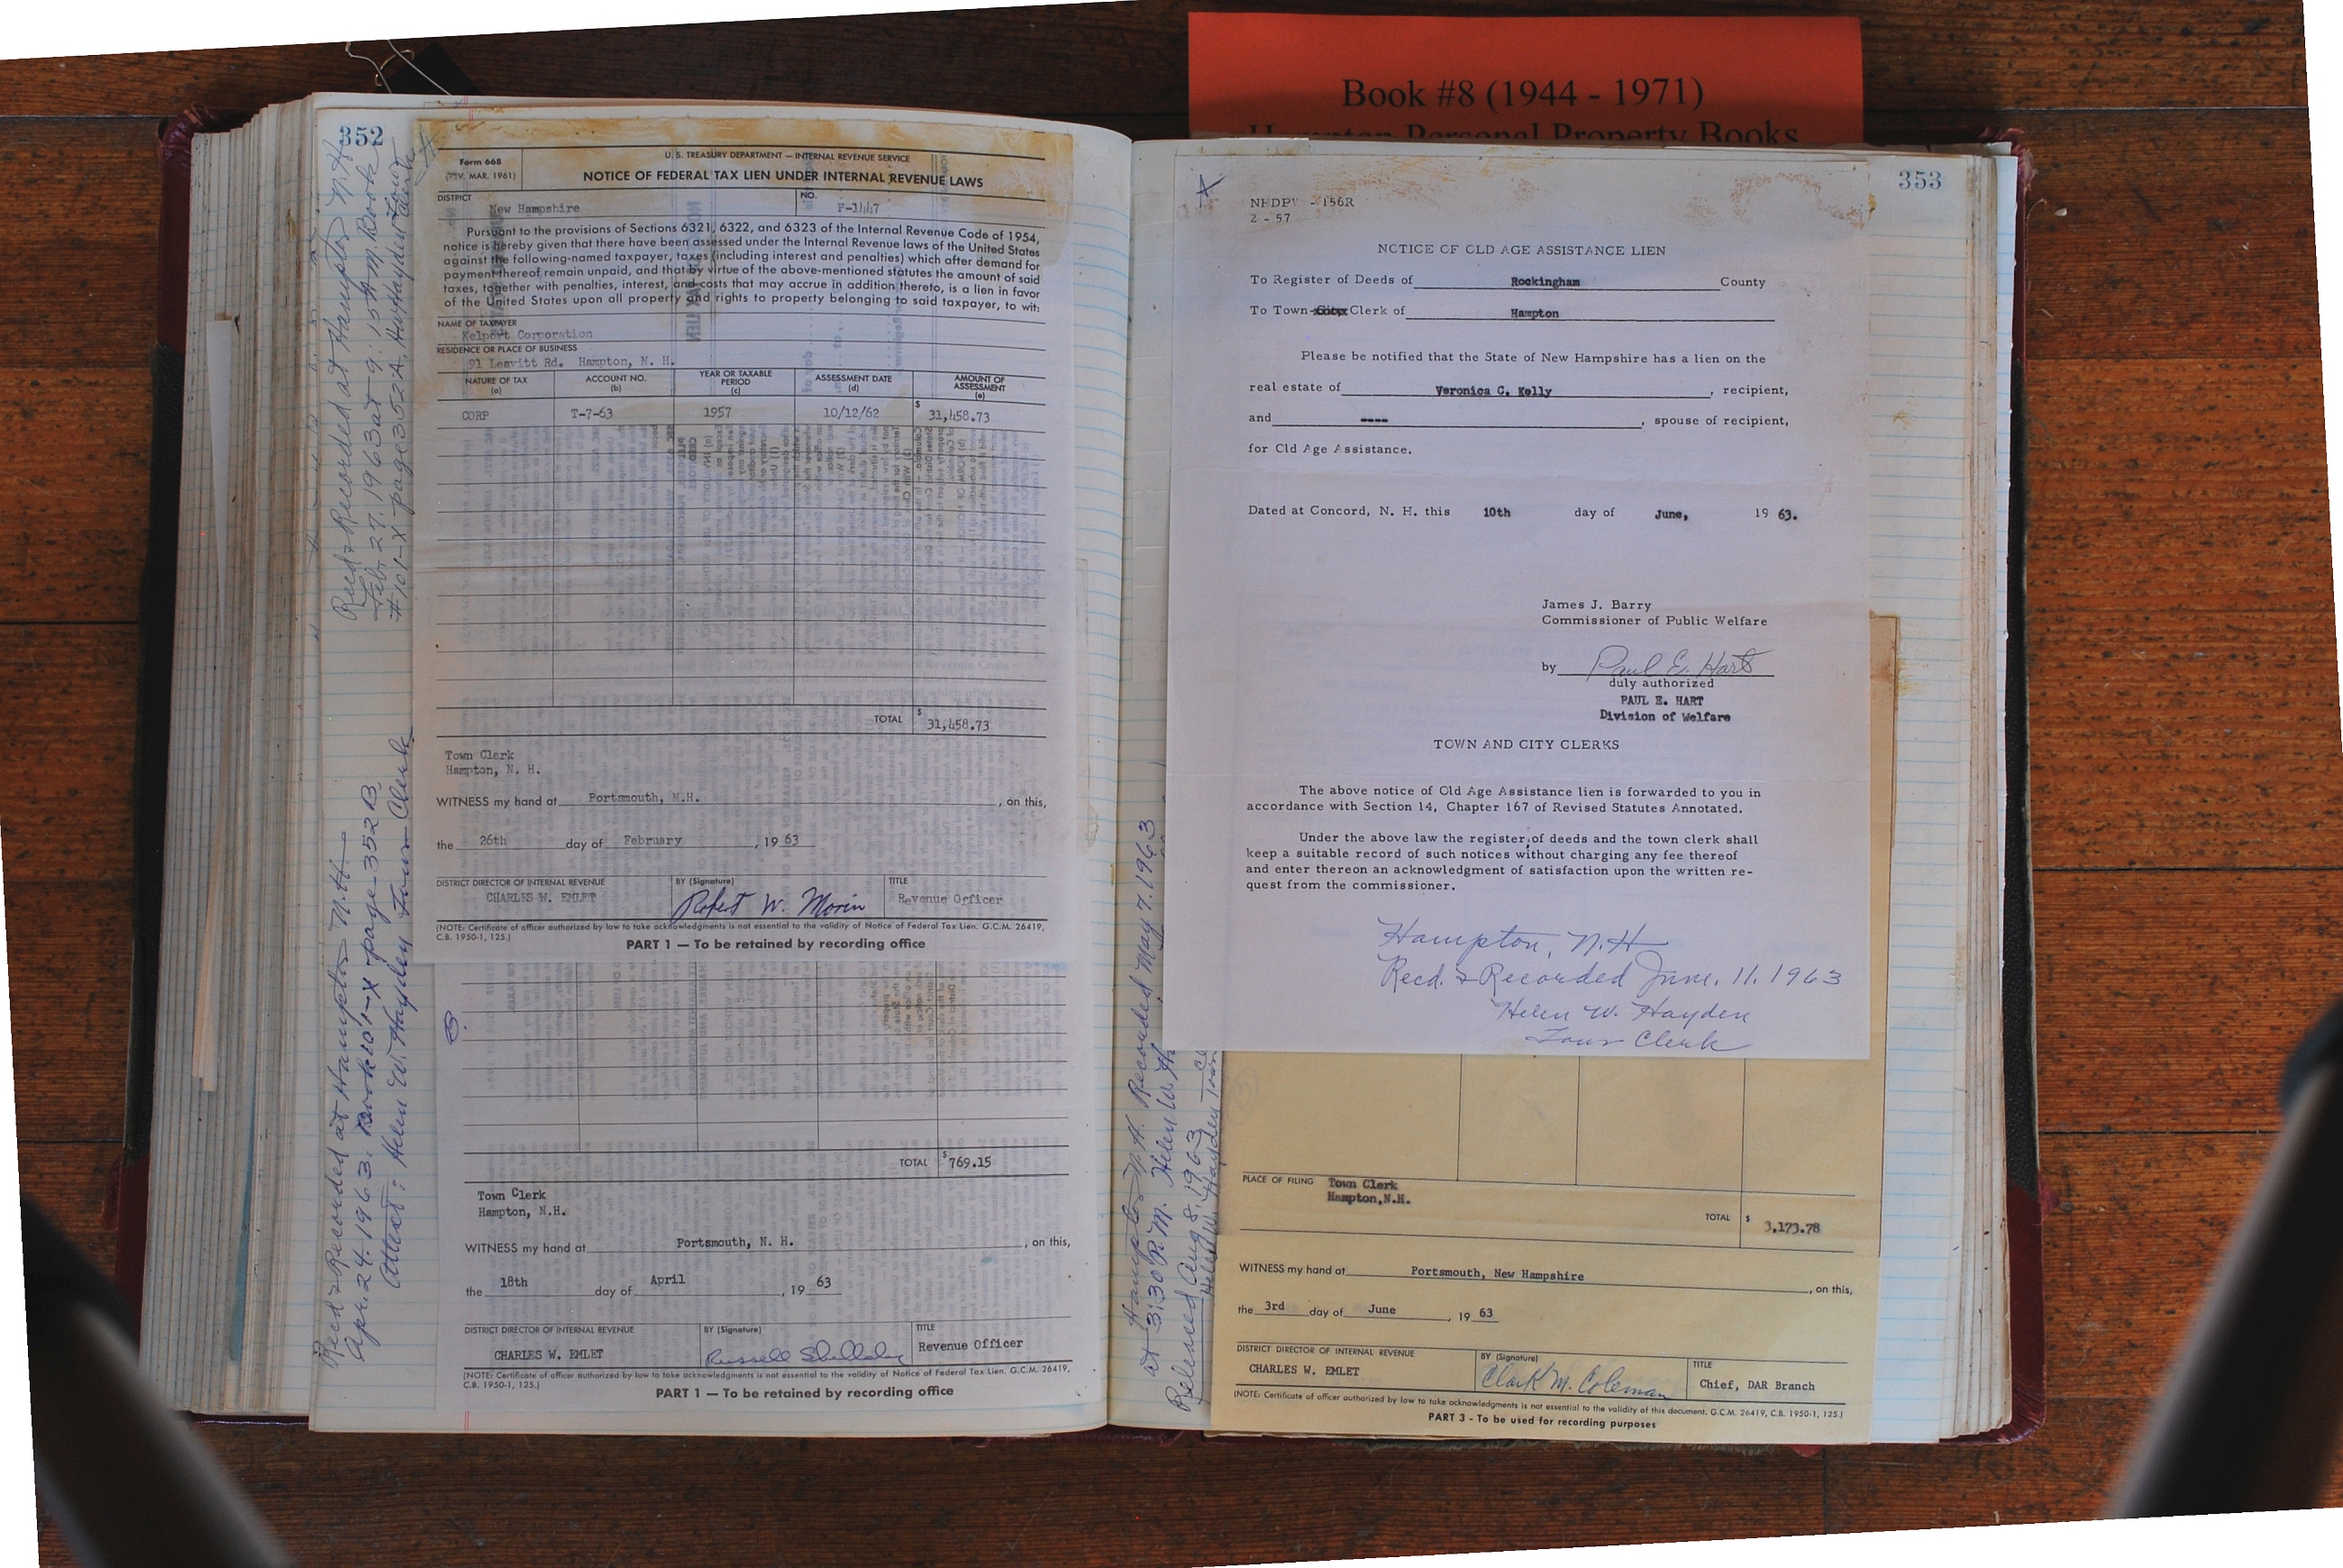 Book #8 (1944 - 1971)
Hampton Personal Property Books
352
Recd & Recorded at Hampton N.H.
Feb. 27. 1963 at 9:15 A.M. Book
#101-X page 352A. Hayden Town Clerk
Form 668
(REV. MAR. 1961)
U. S. TREASURY DEPARTMENT — INTERNAL REVENUE SERVICE
NOTICE OF FEDERAL TAX LIEN UNDER INTERNAL REVENUE LAWS
DISTRICT
New Hampshire
NO.
P-1447
Pursuant to the provisions of Sections 6321, 6322, and 6323 of the Internal Revenue Code of 1954,
notice is hereby given that there have been assessed under the Internal Revenue laws of the United States
against the following-named taxpayer, taxes (including interest and penalties) which after demand for
payment thereof remain unpaid, and that by virtue of the above-mentioned statutes the amount of said
taxes, together with penalties, interest, and costs that may accrue in addition thereto, is a lien in favor
of the United States upon all property and rights to property belonging to said taxpayer, to wit:
NAME OF TAXPAYER
Kelport Corporation
RESIDENCE OR PLACE OF BUSINESS
91 Leavitt Rd. Hampton, N. H.
NATURE OF TAX (a) ACCOUNT NO. (b) YEAR OR TAXABLE PERIOD (c) ASSESSMENT DATE (d) AMOUNT OF ASSESSMENT (e)
CORP T-7-63 1957 10/12/62 $ 31,458.73
TOTAL $ 31,458.73
Town Clerk
Hampton, N. H.
WITNESS my hand at Portsmouth, N.H. , on this,
the 26th day of February , 19 63
DISTRICT DIRECTOR OF INTERNAL REVENUE
CHARLES W. EMLET
BY (Signature)
Robert W. Morin
TITLE
Revenue Officer
(NOTE: Certificate of officer authorized by law to take acknowledgments is not essential to the validity of Notice of Federal Tax Lien. G.C.M. 26419,
C.B. 1950-1, 125.)
PART 1 — To be retained by recording office
Recd & Recorded at Hampton N.H.
Apr. 24. 1963. Book 101-X page 352 B
Attest: Helen W. Hayden Town Clerk
B
TOTAL $ 769.15
Town Clerk
Hampton, N.H.
WITNESS my hand at Portsmouth, N. H. , on this,
the 18th day of April , 19 63
DISTRICT DIRECTOR OF INTERNAL REVENUE
CHARLES W. EMLET
BY (Signature)
Russell
TITLE
Revenue Officer
(NOTE: Certificate of officer authorized by law to take acknowledgments is not essential to the validity of Notice of Federal Tax Lien. G.C.M. 26419,
C.B. 1950-1, 125.)
PART 1 — To be retained by recording office
353
A
NHDPW - 156R
2 - 57
NOTICE OF OLD AGE ASSISTANCE LIEN
To Register of Deeds of Rockingham County
To Town City Clerk of Hampton
Please be notified that the State of New Hampshire has a lien on the
real estate of Veronica C. Kelly , recipient,
and ---- , spouse of recipient,
for Old Age Assistance.
Dated at Concord, N. H. this 10th day of June, 19 63.
James J. Barry
Commissioner of Public Welfare
by Paul E. Hart
duly authorized
PAUL E. HART
Division of Welfare
TOWN AND CITY CLERKS
The above notice of Old Age Assistance lien is forwarded to you in
accordance with Section 14, Chapter 167 of Revised Statutes Annotated.
Under the above law the register of deeds and the town clerk shall
keep a suitable record of such notices without charging any fee thereof
and enter thereon an acknowledgment of satisfaction upon the written re-
quest from the commissioner.
Hampton, N.H.
Recd. & Recorded June. 11. 1963
Helen W. Hayden
Town Clerk
Hampton N.H. Recorded May 7. 1963
at 3:30 P.M. Helen W.
Released Aug 8, 1963
Helen W. Hayden Town
PLACE OF FILING
Town Clerk
Hampton,N.H.
TOTAL $ 3,173.78
WITNESS my hand at Portsmouth, New Hampshire , on this,
the 3rd day of June , 19 63
DISTRICT DIRECTOR OF INTERNAL REVENUE
CHARLES W. EMLET
BY (Signature)
Clark M. Coleman
TITLE
Chief, DAR Branch
(NOTE: Certificate of officer authorized by law to take acknowledgments is not essential to the validity of this document. G.C.M. 26419, C.B. 1950-1, 125.)
PART 3 - To be used for recording purposes